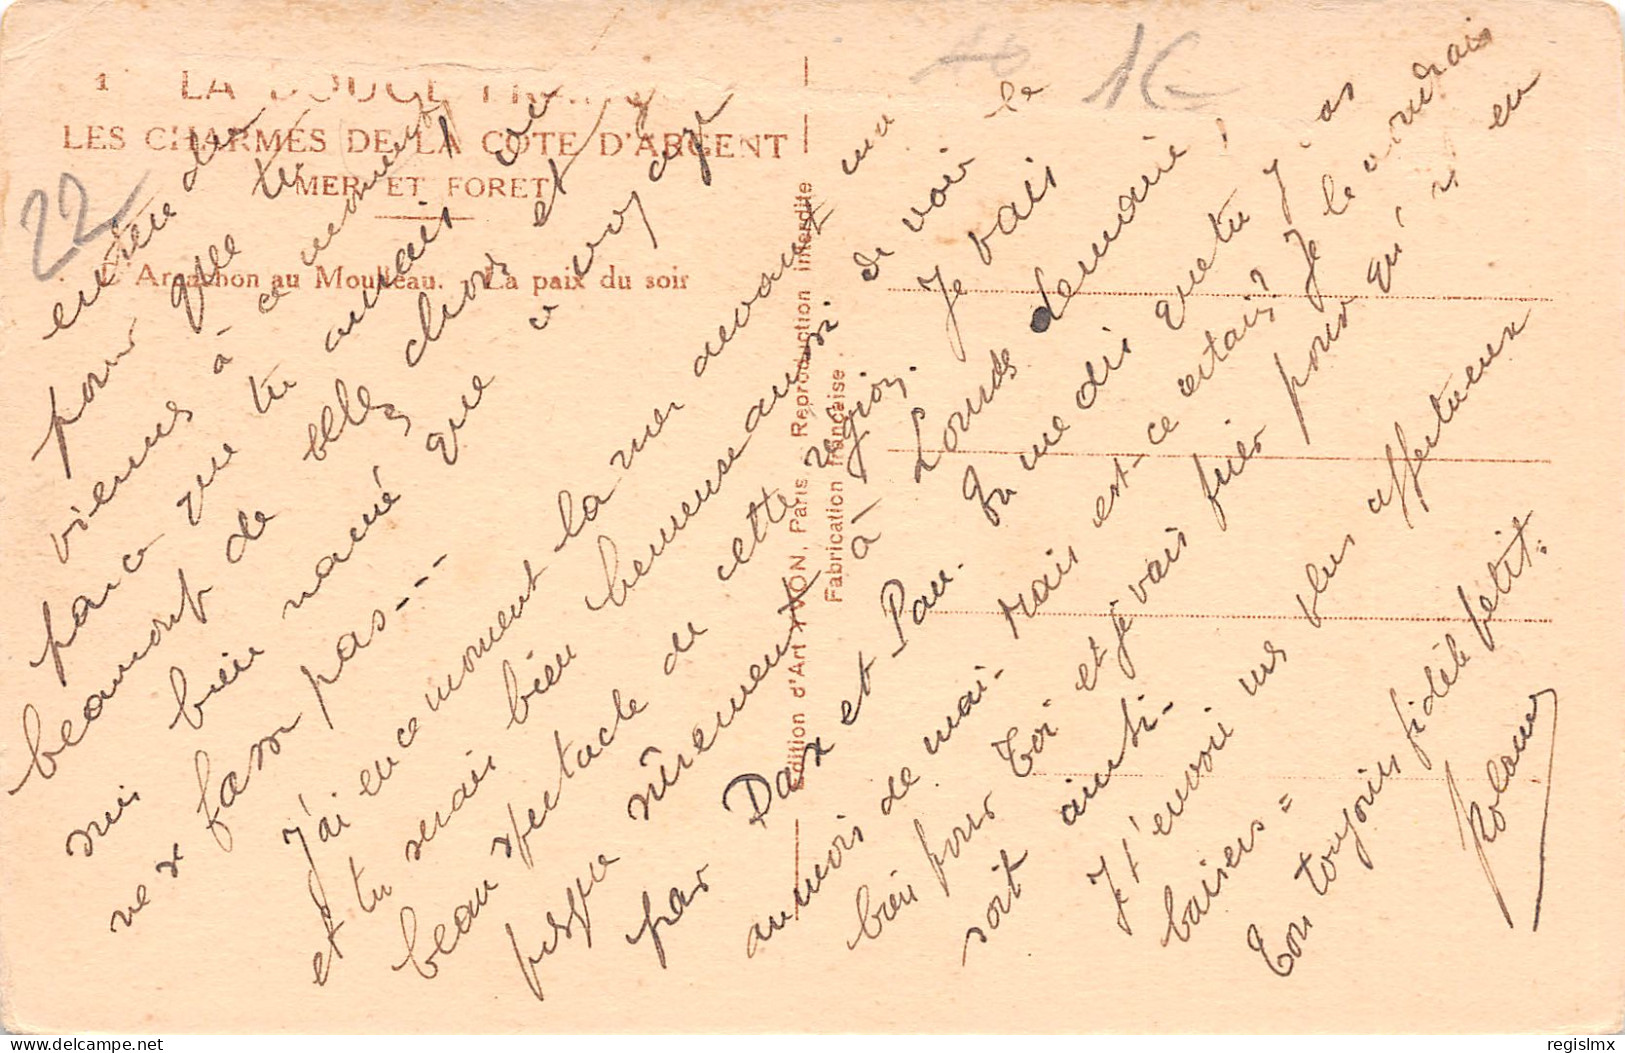 1 LA DOUCE FRANCE
LES CHARMES DE LA COTE D'ARGENT
MER ET FORET
D'Arcachon au Moulleau. La paix du soir
22
1€
Edition d'Art YVON, Paris. Reproduction interdite
Fabrication française.
pour que tu
viennes à ce moment
parce que tu aurais vu
beaucoup de belles choses et
suis bien navré que ce voyage
ne se fasse pas---
J'ai en ce moment la mer devant ma
et tu serais bien heureuse aussi de voir le
beau spectacle de cette région. Je vais
presque sûrement à Lourdes demain,
par Dax et Pau. Tu me dis que tu
au mois de mai. Mais est-ce certain? Je le voudrais
bien pour toi et je vais prier pour qu'il en
soit ainsi.
Je t'envoie mes plus affectueux
baisers=
Ton toujours fidèle petit=
Roland